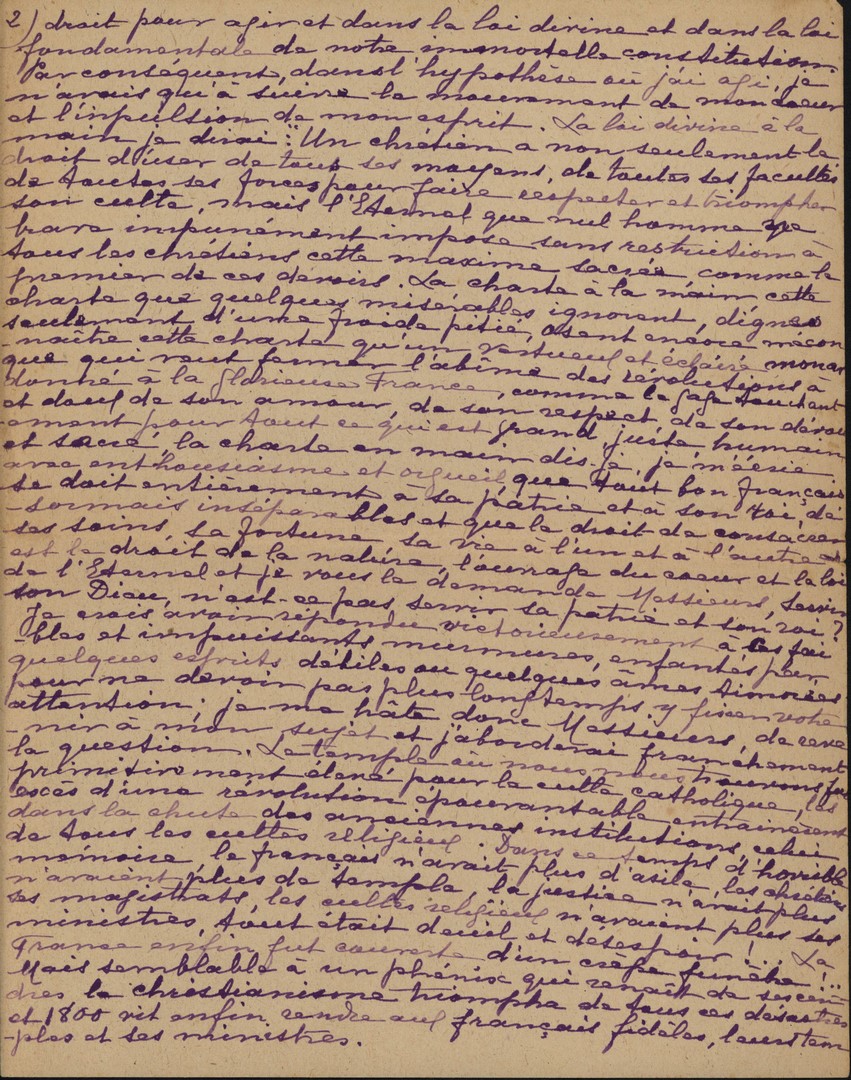 2) droit pour agir et dans la loi divine et dans la loi
fondamentale de notre immortelle constitution.
Par conséquent, dans l'hypothèse où j'ai agi, je
n'avais qu'à suivre le mouvement de mon coeur
et l'impulsion de mon esprit. La loi divine à la
main je dirai : "Un chrétien a non seulement le
droit d'user de tous ses moyens, de toutes ses facultés
de toutes ses forces pour faire respecter et triompher
son culte, mais l'Eternel que nul homme ne
brave impunément impose sans restriction à
tous les chrétiens cette maxime sacrée, comme le
premier de ces devoirs. La charte à la main cette
charte que quelques misérables ignorent, dignes
seulement d'une froide pitié, osent encore mécon
-naître cette charte qu'un vertueux et éclairé monar
que qui veut fermer l'abîme des révolutions à
donné à la glorieuse France, comme le gage touchant
et doux de son amour, de son respect, de son dévou
-ement pour tout ce qui est grand, juste, humain
et sacré, la charte en main dis-je, je m'écrie
avec enthousiasme et orgueil, que tout bon français
se doit entièrement à sa patrie et à son roi, dé
-sormais inséparables et que le droit de consacrer
ses soins, sa fortune sa vie à l'un et à l'autre
est le droit de la nature, l'ouvrage du coeur et la loi
de l'Eternel et je vous le demande Messieurs, servir
son Dieu, n'est-ce pas servir sa patrie et son roi ?
Je crois avoir répondu victorieusement à ces fai
-bles et impuissants murmures, enfantés par
quelques esprits débiles ou quelques âmes timorées
pour ne devoir pas plus longtemps y fixer votre
attention ; je me hâte donc Messieurs, de reve
-nir à mon sujet et j'aborderai franchement
la question. Le temple où nous nous trouvons fut
primitivement élevé pour le culte catholique, les
excès d'une révolution épouvantable entrainèrent
dans la chute des anciennes institutions, celui
de tous les cultes religieux. Dans ce temps d'horrible
mémoire, le français n'avait plus d'asile, les chrétiens
n'avaient plus de temple, la justice n'avait plus
ses magistrats, les cultes religieux n'avaient plus ses
ministres, tout était deuil et désespoir !... La
France enfin fut couverte d'un crêpe funèbre !...
Mais semblable à un phénix qui renaît de ses cen
dres le christianisme triompha de tous ces désastres
et 1800 vit enfin rendre aux français fidèles, leurs tem
-ples et ses ministres.